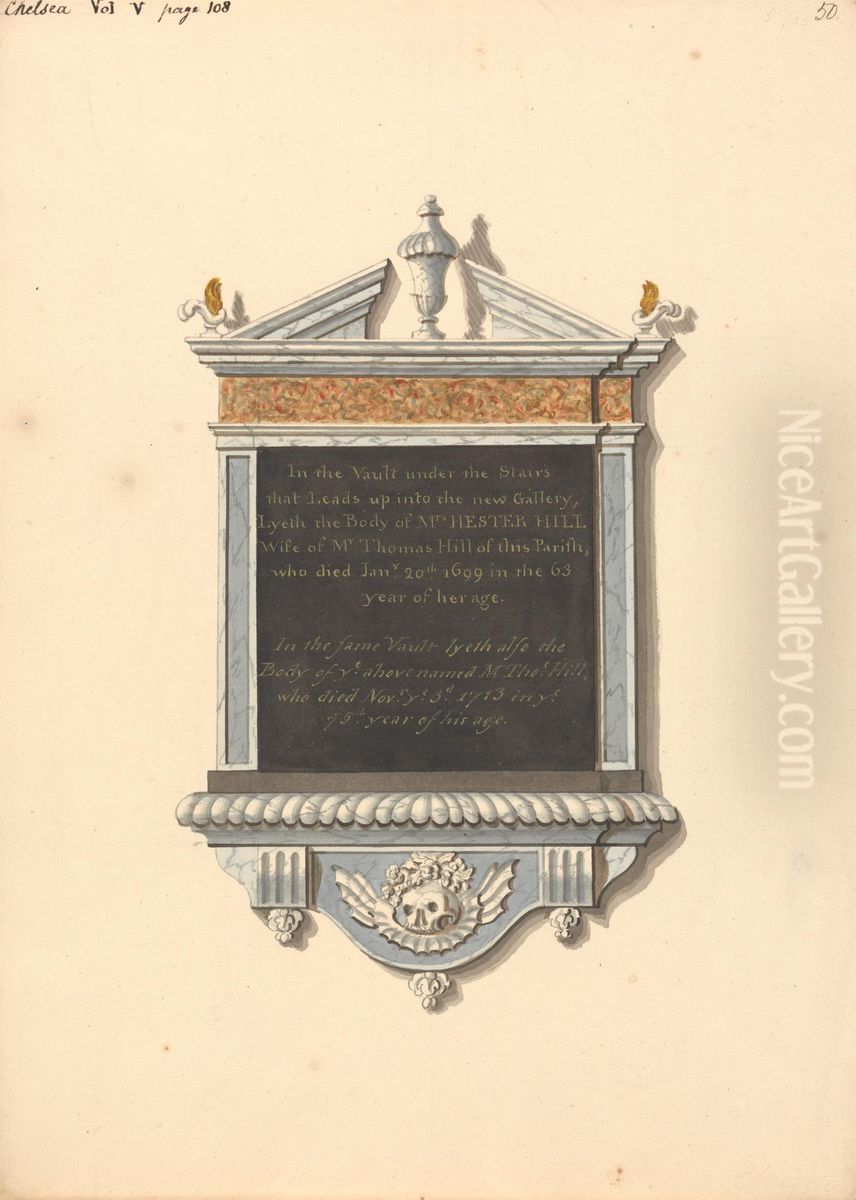 Chelsea Vol V page 108
50.
In the Vault under the Stairs
that Leads up into the new Gallery,
Lyeth the Body of Mrs HESTER HILL
Wife of Mr Thomas Hill of this Pariſh,
who died Jany 20th 1699 in the 63
year of her age.
In the ſame Vault lyeth alſo the
Body of ye above named Mr Thos Hill,
who died Novr ye 3d 1713 in ye
75th year of his age.
NiceArtGallery.com